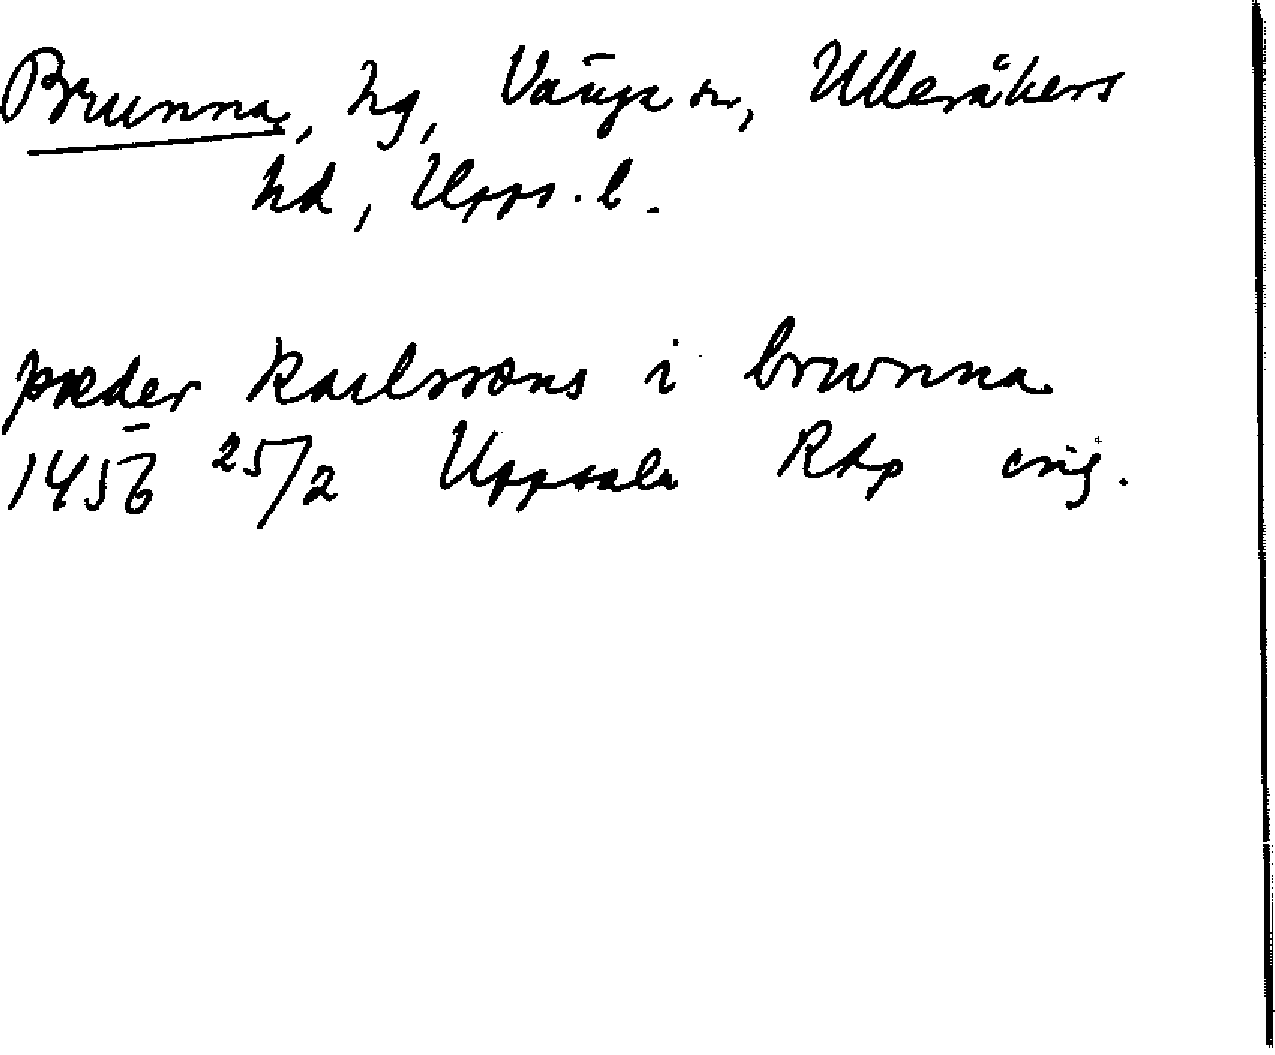 Brunna, hg, Vänge sn, Ulleråkers
hd, Upps. l.
pæder karlssons i brwnna
1456 25/2 Uppsala RAp orig.